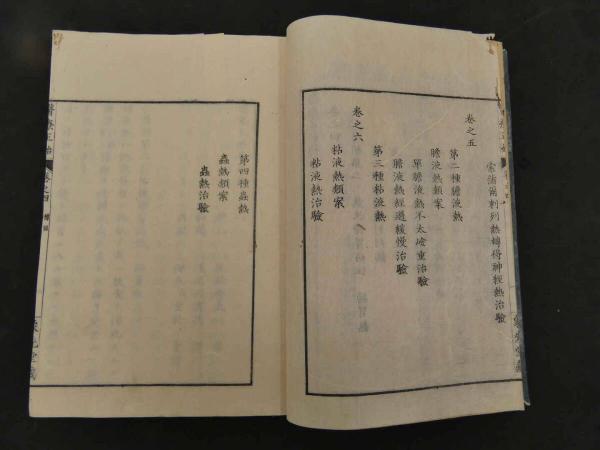 索蒲爾剌列熱轉得神經熱治驗
卷之五
第二種膽液熱
膽液熱類案
單膽液熱不太嶮重治驗
膽液熱經過緩慢治驗
第三種粘液熱
卷之六
粘液熱類案
粘液熱治驗
第四種蟲熱
蟲熱類案
蟲熱治驗